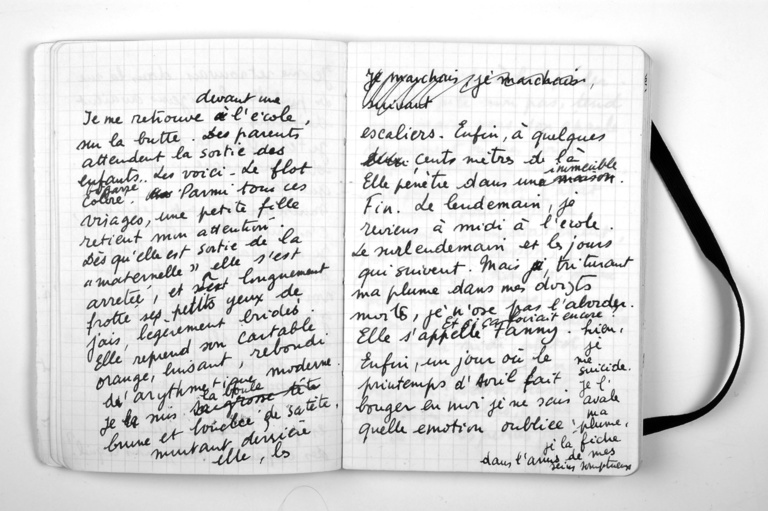 devant une
Je me retrouve à l'école,
sur la butte. Des parents
attendent la sortie des
enfants. Les voici. Le flot
bizarre.
colore. Parmi tous ces
visages, une petite fille
retient mon attention.
Dès qu'elle est sortie de la
"maternelle", elle s'est
arretée, et s'est longuement
frotte ses petits yeux de
jais, legèrement bridés.
Elle reprend son cartable
orange, luisant, rebondi
d'arythmetique moderne.
la boule
Je la suis sa grosse tête
brune et bouclée, de sa tête,
montant derrière
elle, les
Je marchais, je marchais,
suivant
escaliers. Enfin, à quelques
cents mètres de là
immeuble
Elle pénètre dans une maison.
Fin. Le lendemain, je
reviens à midi à l'école.
Le surlendemain et les jours
qui suivent. Mais, triturant
ma plume dans mes doigts
morts, je n'ose pas l'aborder.
Et ça
encore
Elle s'appelle Fanny. hier,
Enfin, un jour où le
printemps d'Avril fait
bouger en moi je ne sais
quelle emotion oubliée
je
me
suicide.
je l'
avale
ma
plume,
je la fiche
dans l'anus de mes
seins somptueux